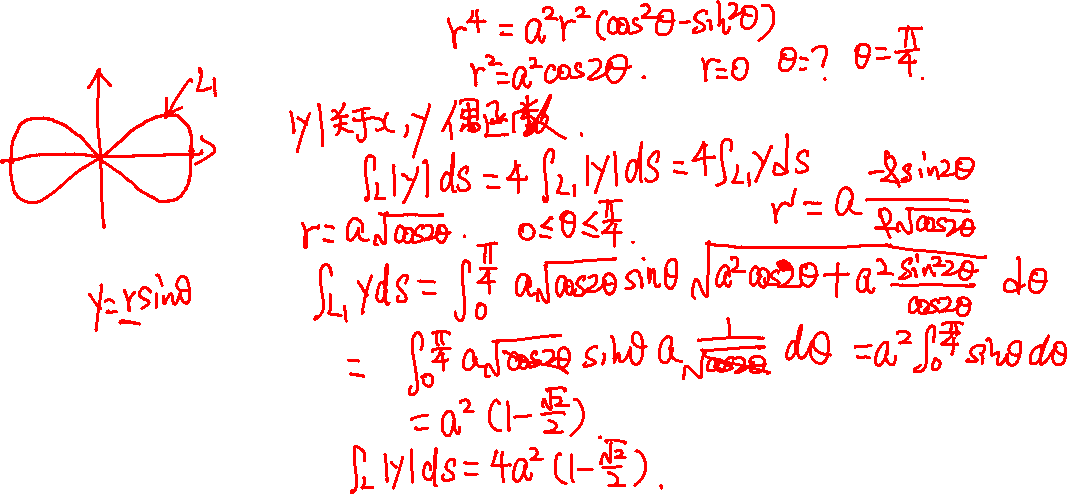 r⁴ = a²r²(cos²θ-sin²θ)
r²=a²cos2θ. r=0 θ=? θ=π/4.
L₁
|y|关于x,y偶函数.
∫_L|y|ds = 4∫_{L₁}|y|ds = 4∫_{L₁}yds
r=a√cos2θ. 0≤θ≤π/4. r'=a (-2sin2θ)/(2√cos2θ)
y=rsinθ
∫_{L₁}yds = ∫₀^{π/4} a√cos2θ sinθ √(a²cos2θ+a² sin²2θ/cos2θ) dθ
= ∫₀^{π/4} a√cos2θ sinθ a 1/√cos2θ dθ = a²∫₀^{π/4} sinθdθ
= a²(1-√2/2)
∫_L|y|ds = 4a²(1-√2/2).